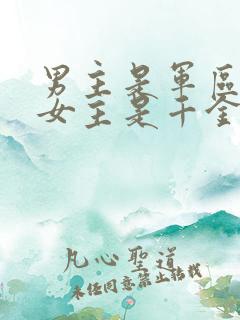 男主是军区
女主是千金
凡心聖道
未经同意禁止转载